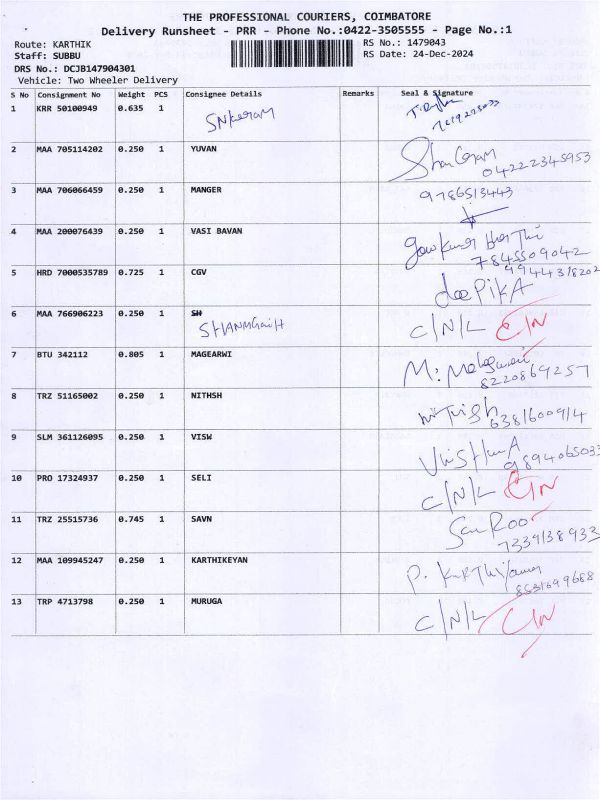 THE PROFESSIONAL COURIERS, COIMBATORE
Delivery Runsheet - PRR - Phone No.:0422-3505555 - Page No.:1
Route: KARTHIK RS No.: 1479043
Staff: SUBBU RS Date: 24-Dec-2024
DRS No.: DCJB147904301
Vehicle: Two Wheeler Delivery
S No Consignment No Weight PCS Consignee Details Remarks Seal & Signature
1 KRR 50100949 0.635 1
2 MAA 705114202 0.250 1 YUVAN 04222345953
3 MAA 706066459 0.250 1 MANGER 9786513443
4 MAA 200076439 0.250 1 VASI BAVAN 7845509042
5 HRD 7000535789 0.725 1 CGV 9944318202
deepika
6 MAA 766906223 0.250 1 SH C/N/L
7 BTU 342112 0.805 1 MAGEARWI 8220869257
8 TRZ 51165002 0.250 1 NITHSH 6381600914
9 SLM 361126095 0.250 1 VISW 9894065033
10 PRO 17324937 0.250 1 SELI C/N/L
11 TRZ 25515736 0.745 1 SAVN 7339138933
12 MAA 109945247 0.250 1 KARTHIKEYAN 8531699688
13 TRP 4713798 0.250 1 MURUGA C/N/L